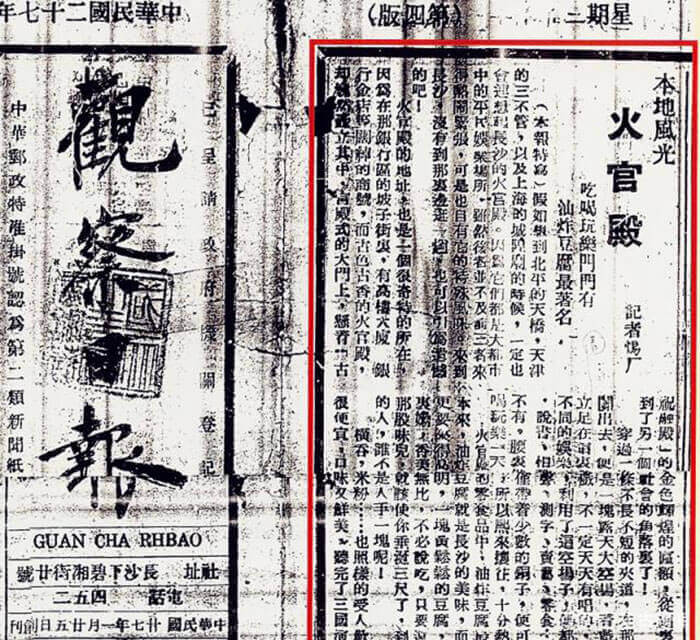 星期二
(第四版)
中華民國二十七年
本地風光
火官殿
吃喝玩樂門門有
油炸豆腐最著名,
記者惕厂
(本報特寫)假如想到北平的天橋,天津
的三不管,以及上海的城隍廟的時候,一定也
會連想到長沙的火官殿。因為它們都是大都市
中的平民娛樂場所。雖然後者並不及前三者來
得熱鬧緊張,可是也自有它的特殊風味。來到
長沙,沒有到那裏逛一趟,也可以引為遺憾
的吧!
火官殿的地址,也是一個很奇特的所在。
因為在那銀行區的坡子街裏,有高樓大廈,銀
行金店等闊綽的商號,而古色古香的火官殿,
却立其中,宮殿式的大門上,懸着「古
殿」的金色輝煌的匾額,從
到了另一個社會的角落裏了!
穿過一條不長不短的夾道,
出去,便是一塊露天大空場,
立足在裏,不一定天天有唱的,
不同的娛樂,利用了這空場子,便
,說書,相聲,測字,賣藝,零食
不有。腰裏帶着少數的銅子,便可
喝玩樂一天,所以熙來攘往,十分熱
火官殿的零食品中,油炸豆腐
本來,油炸豆腐就是長沙的美味,而
更要高明,一塊黃鬆鬆的豆腐,
香美無比,不必說吃,只要
那股味兒,就該使你垂涎三尺了,到
的人,誰不是人手一塊呢!
橫香,米粉……也照樣的受人歡
很便宜,口味又鮮美。聽完了三國
觀察日報
呈請改行
關登記
中華郵政特准掛號認為第二類新聞紙
GUAN CHA RHBAO
社址 長沙下碧湘街廿號
電話 四五二
中華民國廿七年一月廿五日創刊